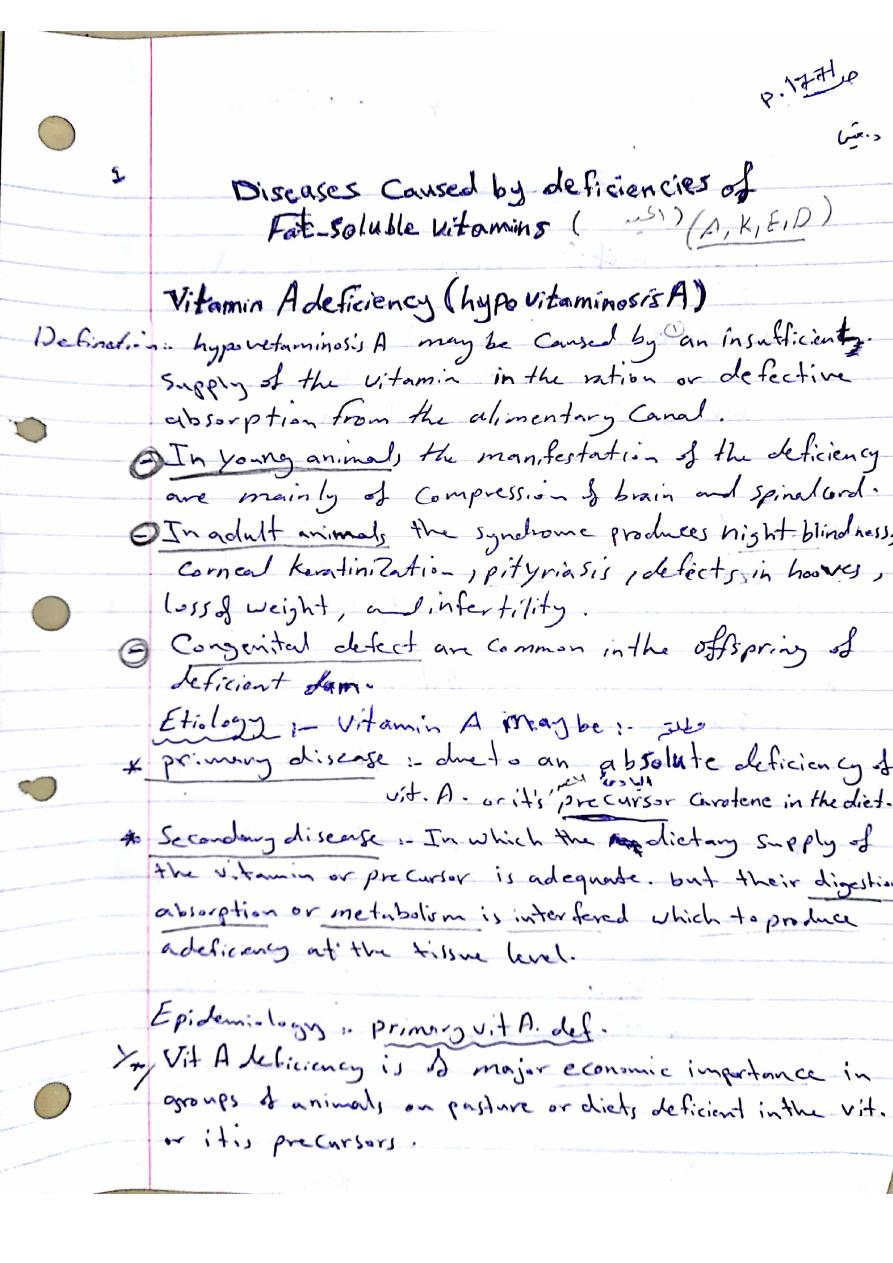 p. 1771 ص
1
Diseases Caused by deficiencies of
Fat-soluble vitamins ( (A, K, E, D)
Vitamin A deficiency (hypovitaminosis A)
Defination:- hypovetaminosis A may be Caused by ① an insufficient
Supply of the vitamin in the ration or defective
absorption from the alimentary Canal.
- In young animals, the manifestation of the deficiency
are mainly of compression of brain and spinal cord.
- In adult animals the syndrome produces night-blindness,
Corneal keratinization, pityriasis, defects, in hooves,
loss of weight, and infertility.
- Congenital defect are common in the offspring of
deficient dam.
Etiology :- Vitamin A may be :-
* primary disease :- due to an absolute deficiency of
vit. A. or it's precursor Carotene in the diet.
* Secondary disease :- In which the dietary supply of
the vitamin or precursor is adequate. but their digestion
absorption or metabolism is interfered which to produce
a deficiency at the tissue level.
Epidemiology :- primary vit A. def.
Vit A deficiency is of major economic importance in
groups of animals on pasture or diets deficient in the vit.
or itis precursors.